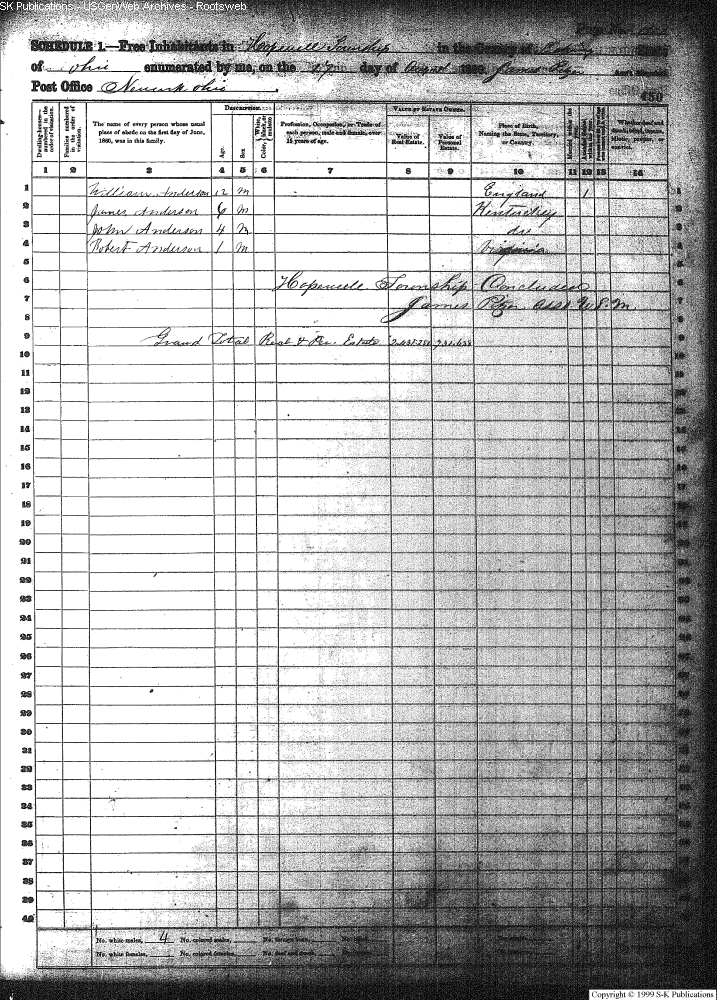 SK Publications - USGenWeb Archives - Rootsweb
SCHEDULE 1.—Free Inhabitants in Hopewell Township in the County of Licking State
of Ohio enumerated by me, on the 27th day of August 1860. James Ass't Marshal
Post Office Newark Ohio
450
Dwelling-houses—numbered in the order of visitation.
Families numbered in the order of visitation.
The name of every person whose usual place of abode on the first day of June, 1860, was in this family.
DESCRIPTION.
Age.
Sex
Color, White, black, or mulatto
Profession, Occupation, or Trade of each person, male and female, over 15 years of age.
VALUE OF ESTATE OWNED.
Value of Real Estate.
Value of Personal Estate.
Place of Birth, Naming the State, Territory, or Country.
Married within the year
1 2 3 4 5 6 7 8 9 10 11 12 13 14
1 William Anderson 12 M England 1 1
2 James Anderson 6 M Kentuckey 2
3 John Anderson 4 M do 3
4 Robert Anderson 1 M Virginia 4
5 5
6 Hopewell Township Concluded 6
7 James asst U.S.M. 7
8 8
9 Grand Total Real & Per. Estate 9
10 10
11 11
12 12
13 13
14 14
15 15
16 16
17 17
18 18
19 19
20 20
21 21
22 22
23 23
24 24
25 25
26 26
27 27
28 28
29 29
30 30
31 31
32 32
33 33
34 34
35 35
36 36
37 37
38 38
39 39
40 40
No. white males, 4 No. colored males, No. foreign born,
No. white females, No. colored females, No. deaf and dumb,
Copyright © 1999 S-K Publications